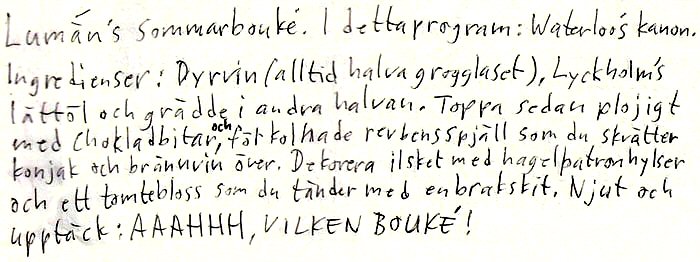 Lumán's sommarbouké. I detta program: Waterloo's kanon.
Ingredienser: Dyrvin (alltid halva grogglaset), Lyckholm's
lättöl och grädde i andra halvan. Toppa sedan plojigt
med chokladbitar, och förkolnade revbensspjäll som du skvätter
konjak och brännvin över. Dekorera ilsket med hagelpatronhylser
och ett tomtebloss som du tänder med en brakskit. Njut och
upptäck: AAAHHH, VILKEN BOUKÉ!